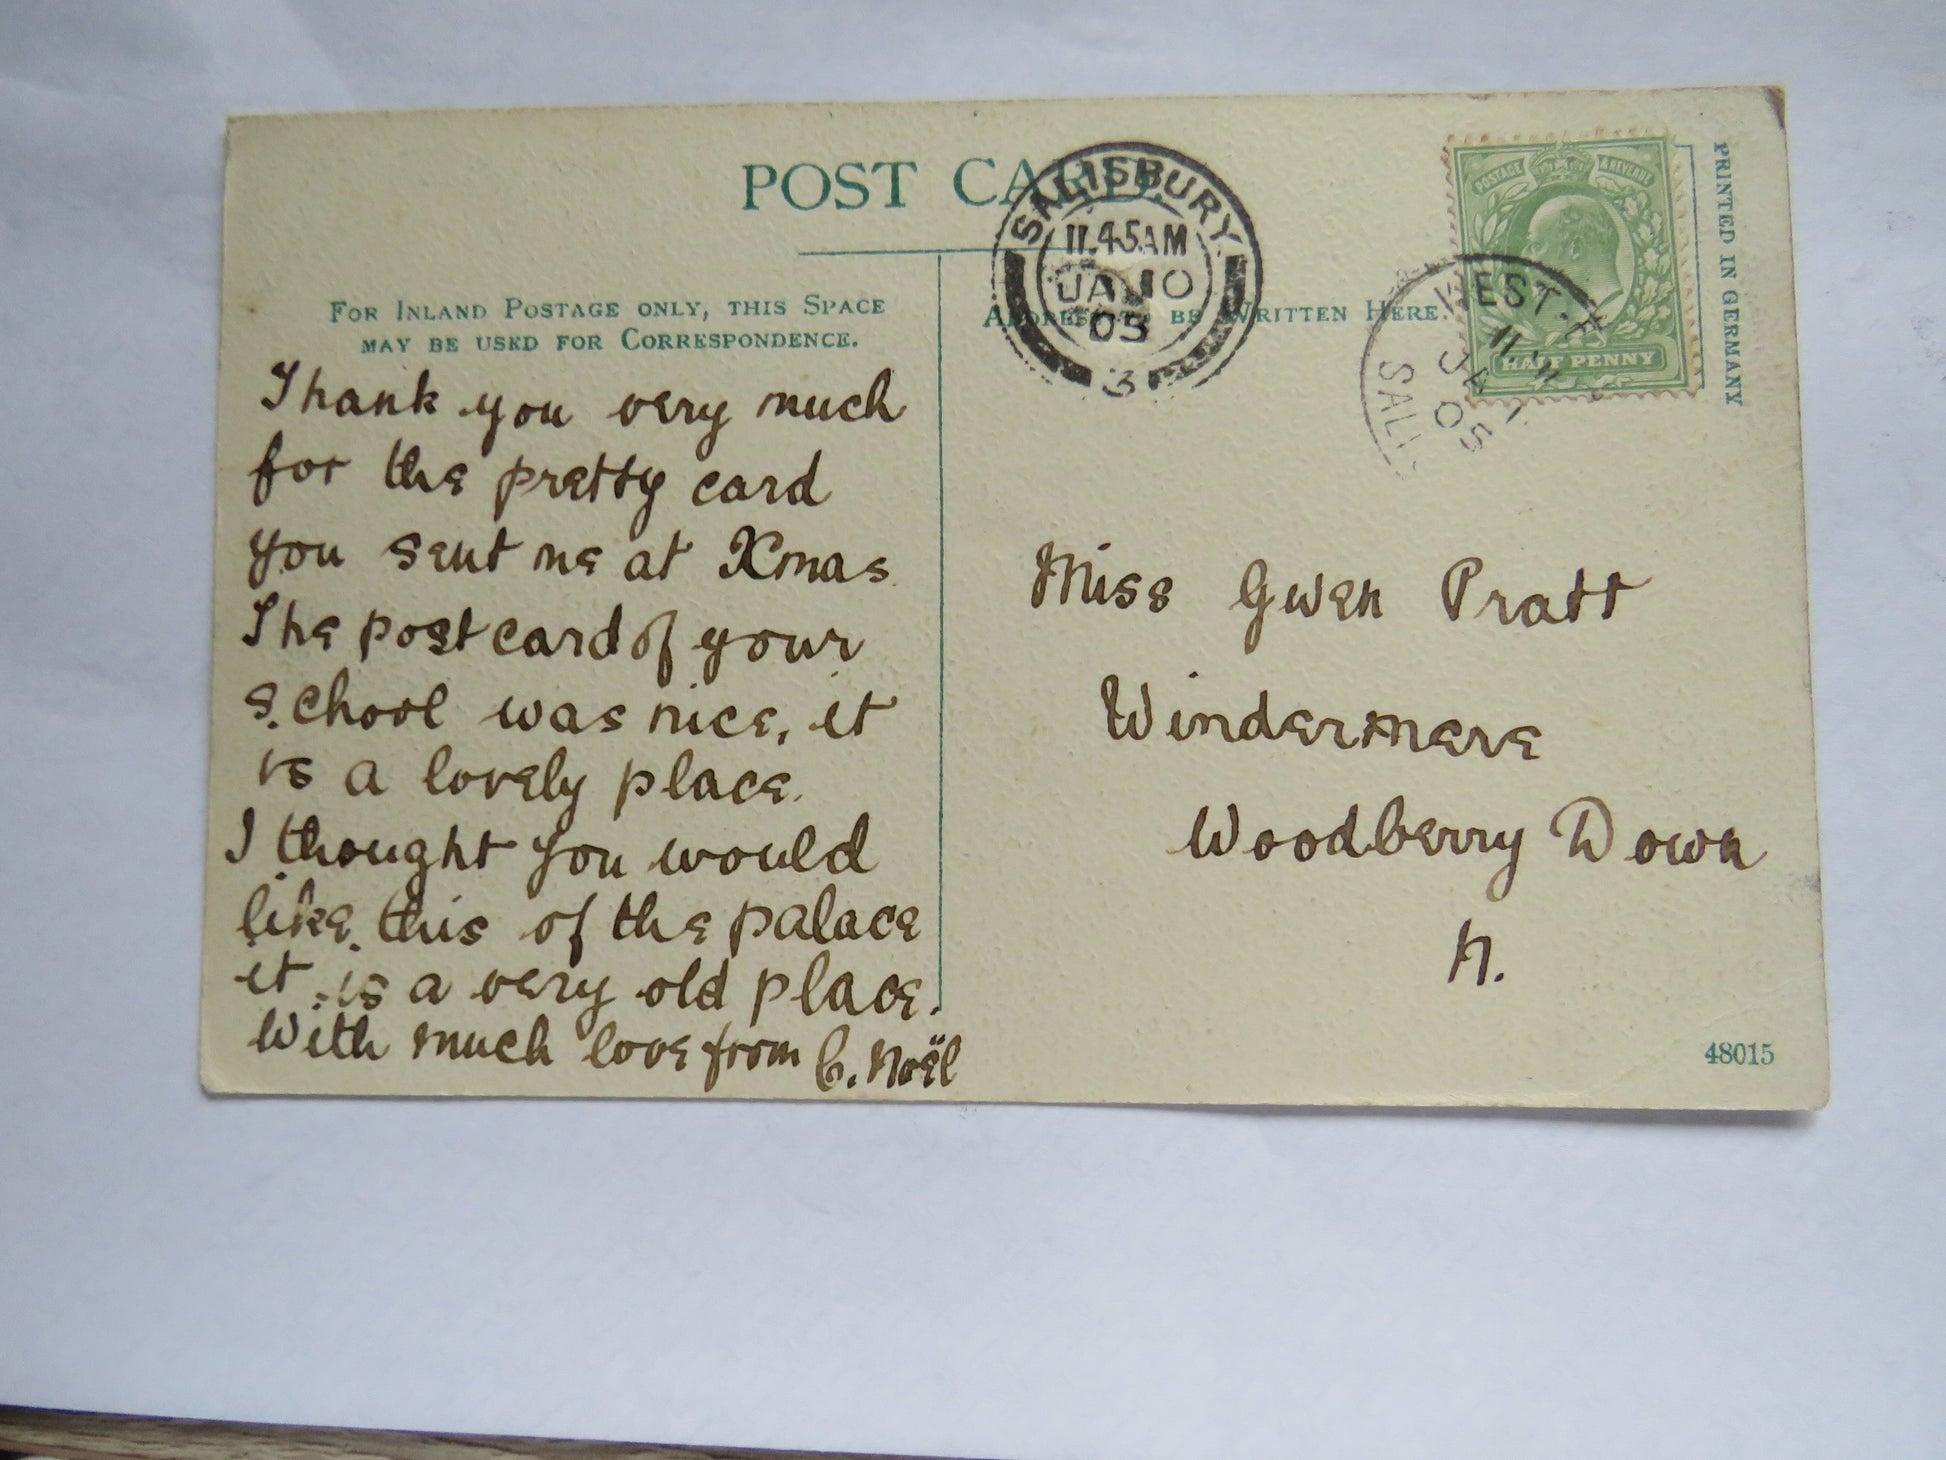 POST CARD.
FOR INLAND POSTAGE ONLY, THIS SPACE
MAY BE USED FOR CORRESPONDENCE.
Thank you very much
for the pretty card
you sent me at Xmas.
The postcard of your
school was nice, it
is a lovely place.
I thought you would
like this of the palace
it is a very old place.
With much love from C. Noël
SALISBURY
11.45AM
JA 10
05
3
ADDRESS TO BE WRITTEN HERE.
POSTAGE & REVENUE
HALF PENNY
JA
05
PRINTED IN GERMANY
Miss Gwen Pratt
Windermere
Woodberry Down
N.
48015